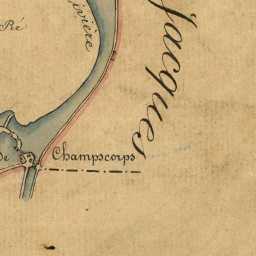 Pré
Rivière
Jacques
de
Champscorps